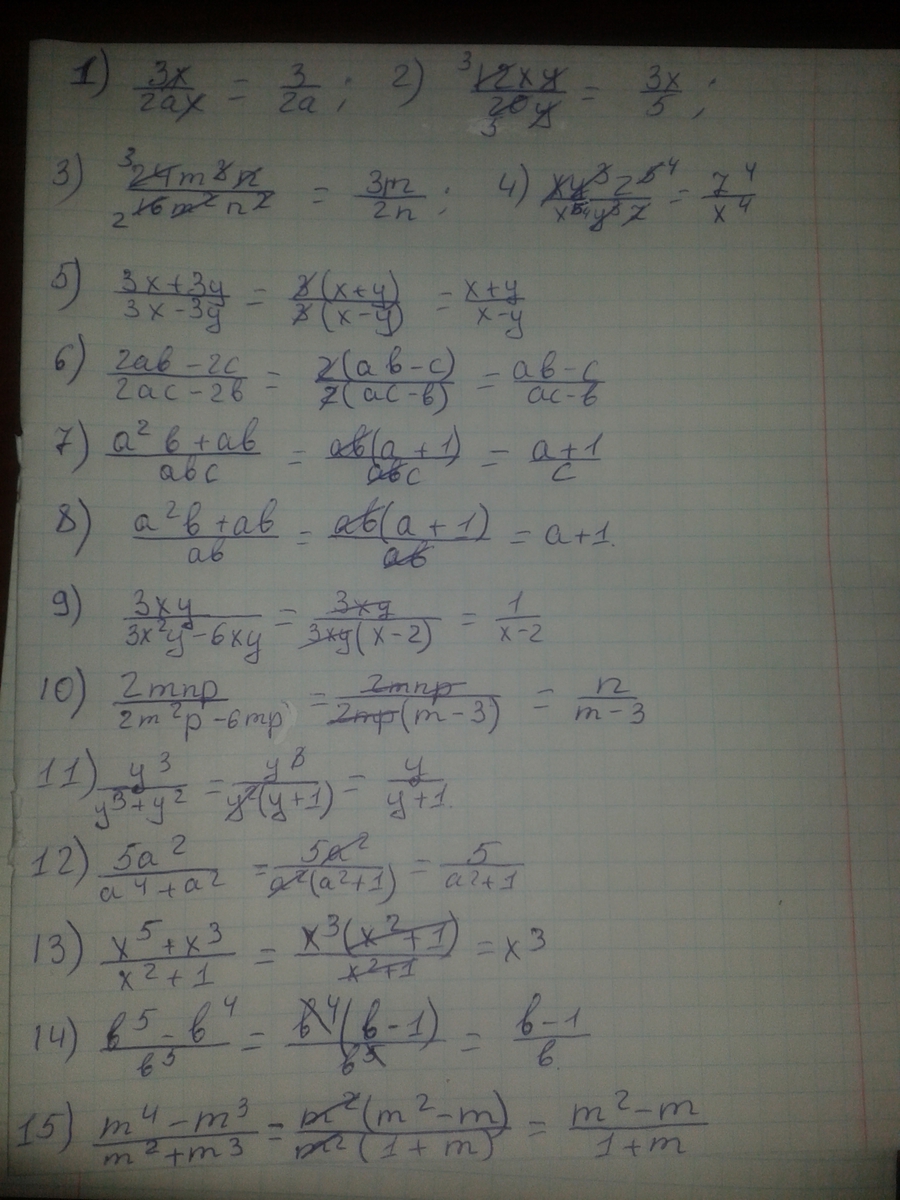 1) 3x/2ax = 3/2a ; 2) 3 12xy/20y 5 = 3x/5 ;
3) 3 24m³n/2 16m²n² = 3m/2n ; 4) xy³z⁵ ⁴/x⁵ ⁴y³z = z⁴/x⁴
5) 3x+3y/3x-3y = 3(x+y)/3(x-y) = x+y/x-y
6) 2ab-2c/2ac-2b = 2(ab-c)/2(ac-b) = ab-c/ac-b
7) a²b+ab/abc = ab(a+1)/abc = a+1/c
8) a²b+ab/ab = ab(a+1)/ab = a+1.
9) 3xy/3x²y-6xy = 3xy/3xy(x-2) = 1/x-2
10) 2mnp/2m²p-6mp = 2mnp/2mp(m-3) = n/m-3
11) y³/y³+y² = y³/y²(y+1) = y/y+1.
12) 5a²/a⁴+a² = 5a²/a²(a²+1) = 5/a²+1
13) x⁵+x³/x²+1 = x³(x²+1)/x²+1 = x³
14) b⁵-b⁴/b⁵ = b⁴(b-1)/b⁵ = b-1/b
15) m⁴-m³/m²+m³ = m²(m²-m)/m²(1+m) = m²-m/1+m